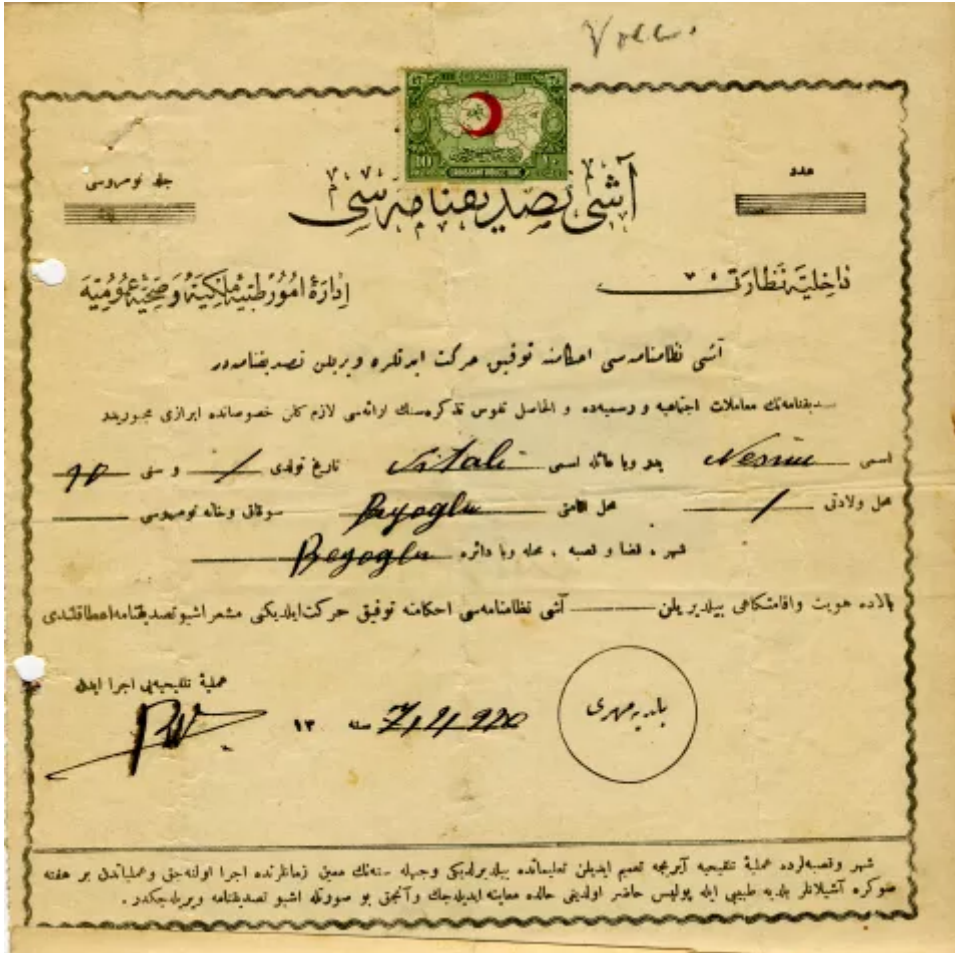 عدد
جلد نومروسی
آشی تصدیقنامه‌سی
داخلیه نظارتی
اداره امور طبیه ملکیه و صحیه عمومیه
آشی نظامنامه‌سی احکامنه توفیق حرکت ایدنلره ویریلن تصدیقنامه‌در
معاملات اجتماعیه و رسمیه‌ده و الحاصل نفوس تذکره‌سنك ارائه‌سی لازم کلن خصوصاتده ابرازی مجبوریدر
اسمی Nesim پدر ویا عائله اسمی Vitali تاریخ تولدی / و سنی
محل ولادتی / محل اقامتی Beyoglu سوقاق و خانه نومروسی
شهر ، قضا و قصبه ، محله ویا دائره Beyoglu
بالاده هویت واقامتکاهی بیلدیریلن آشی نظامنامه‌سی احکامنه توفیق حرکت ایلدیکنی مشعر اشبو تصدیقنامه اعطا قلندی
عملیهٔ تلقیحیه‌یی اجرا ایدن
سنه ١٣
بلدیه مهری
شهر وقصبه‌لرده عملیهٔ تلقیحیه آیریجه تعمیم ایدیلن تعلیماتده بیلدیرلدیکی وجهله سنه‌نك معین زمانلرنده اجرا اولنه‌جق وعملیاتدن بر هفته
صوکره آشیلانلر بلدیه طبیبی ایله پولیس حاضر اولدیغی حالده معاینه ایدیله‌جك وآنجق بو صورتله اشبو تصدیقنامه ویریله‌جکدر .